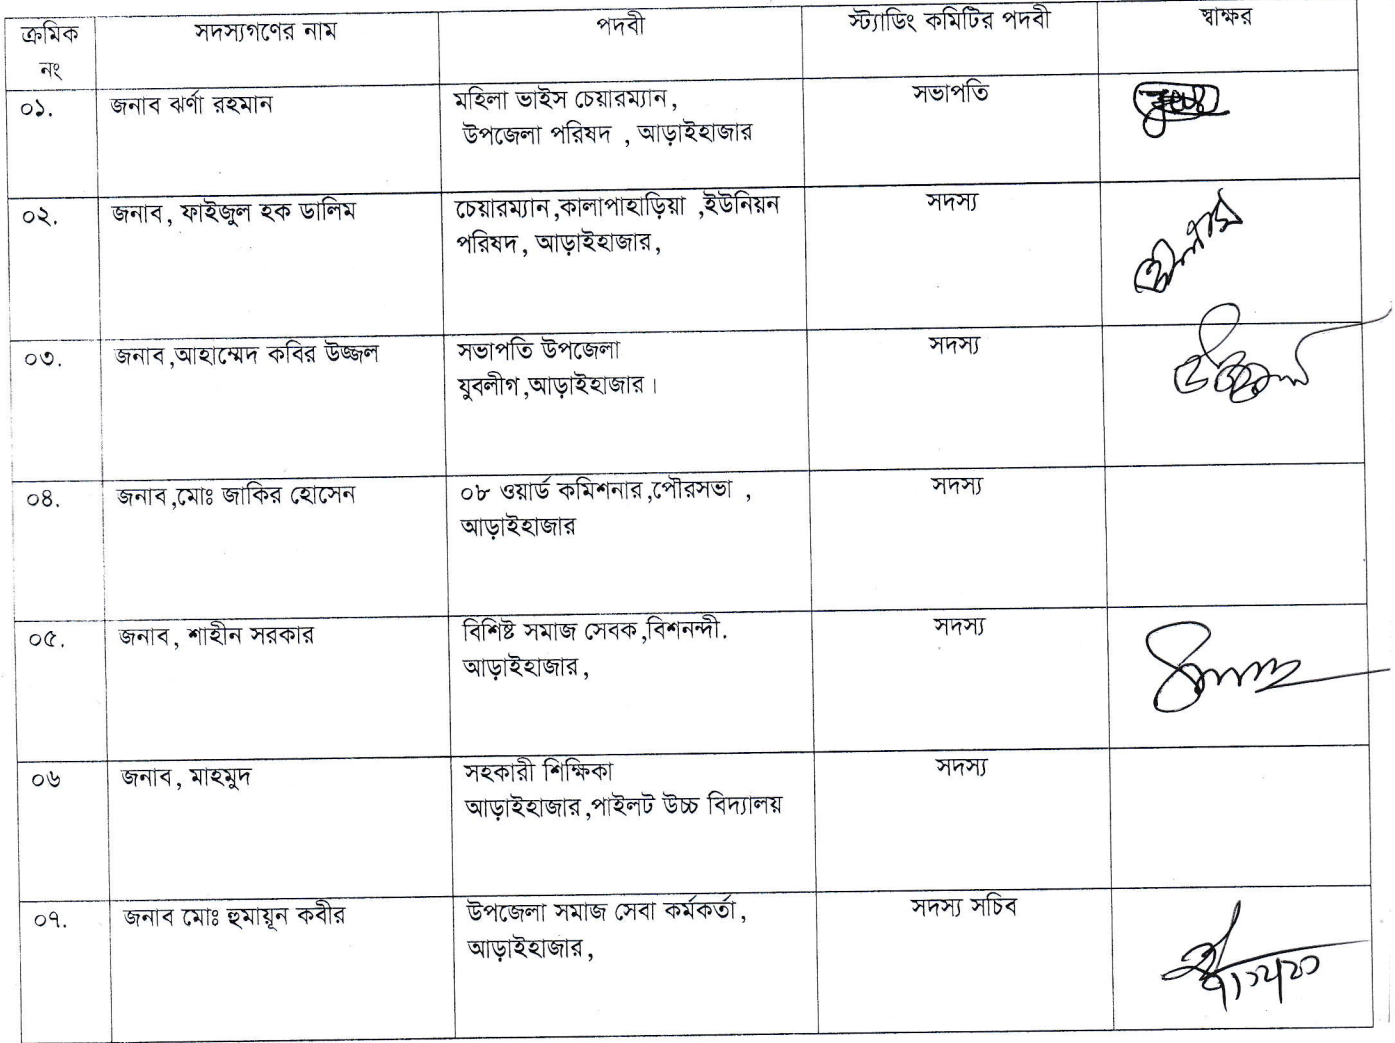 ক্রমিক নং সদস্যগণের নাম পদবী স্ট্যাডিং কমিটির পদবী স্বাক্ষর
০১. জনাব ঝর্ণা রহমান মহিলা ভাইস চেয়ারম্যান, সভাপতি
উপজেলা পরিষদ , আড়াইহাজার
০২. জনাব, ফাইজুল হক ডালিম চেয়ারম্যান,কালাপাহাড়িয়া ,ইউনিয়ন সদস্য
পরিষদ, আড়াইহাজার,
০৩. জনাব,আহাম্মেদ কবির উজ্জল সভাপতি উপজেলা সদস্য
যুবলীগ,আড়াইহাজার।
০৪. জনাব,মোঃ জাকির হোসেন ০৮ ওয়ার্ড কমিশনার,পৌরসভা , সদস্য
আড়াইহাজার
০৫. জনাব, শাহীন সরকার বিশিষ্ট সমাজ সেবক,বিশনন্দী. সদস্য
আড়াইহাজার,
০৬ জনাব, মাহমুদ সহকারী শিক্ষিকা সদস্য
আড়াইহাজার,পাইলট উচ্চ বিদ্যালয়
০৭. জনাব মোঃ হুমায়ূন কবীর উপজেলা সমাজ সেবা কর্মকর্তা, সদস্য সচিব
আড়াইহাজার,